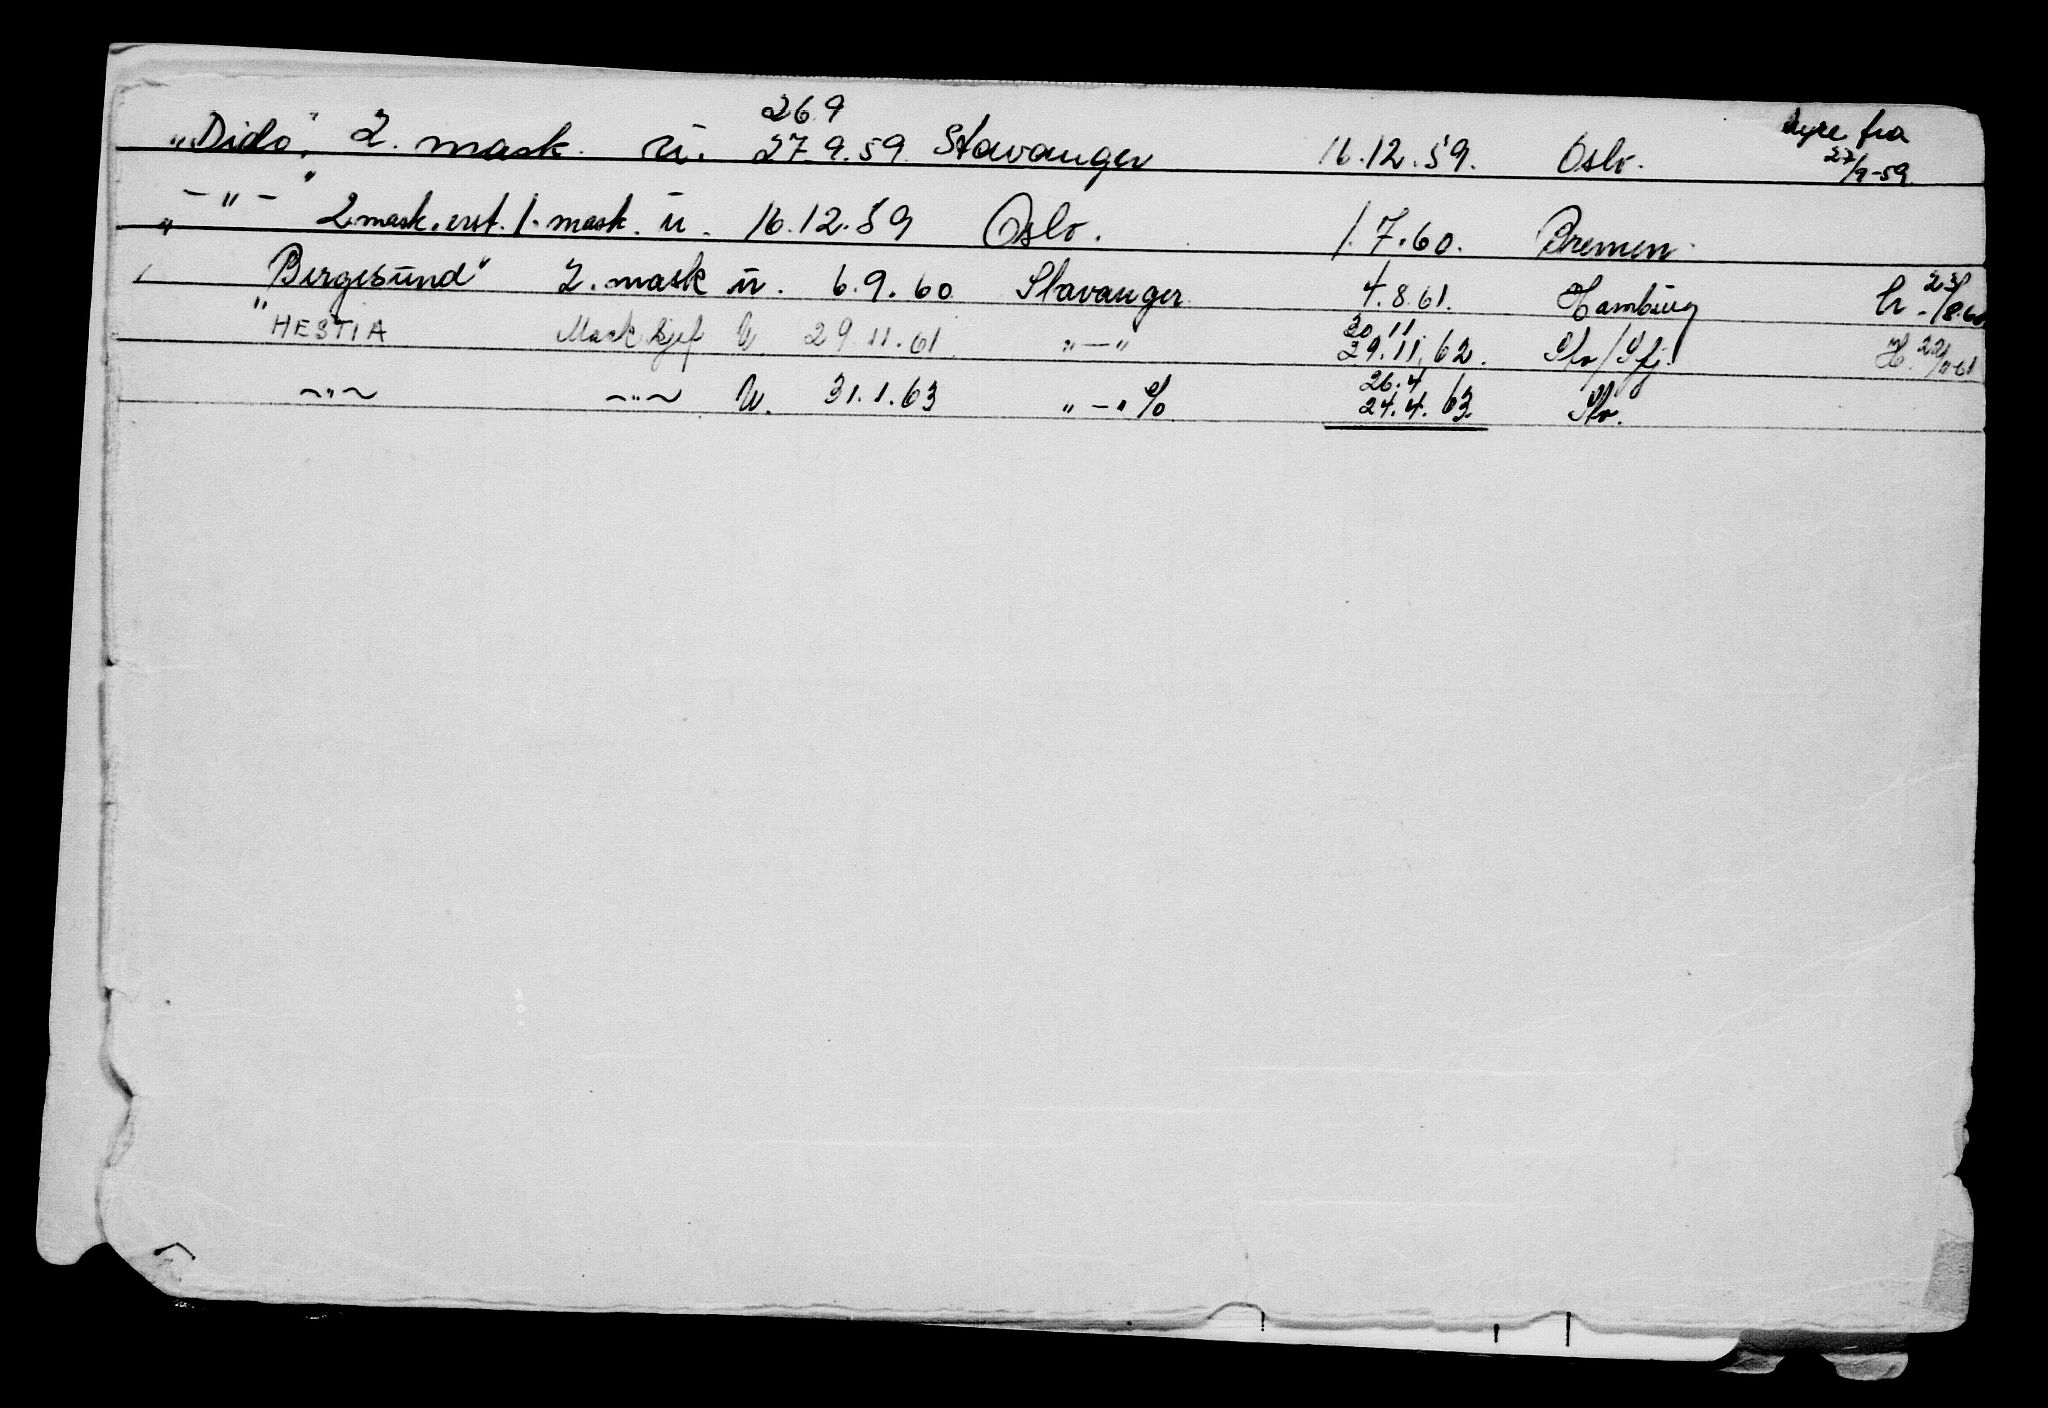 26.9
„Dido", 2. mask. u. 27.9.59 Stavanger 16.12.59. Oslo. hyre fra 27/9-59.
-„- 2 mask. erst. 1. mask. u. 16.12.59 Oslo. 1.7.60. Bremen.
„Bergesund" 2. mask u. 6.9.60 Stavanger 4.8.61. Hamburg h. 23/8.60
30.11
"HESTIA Mask.sjef U. 29.11.61 „-" 29.11.62. Slv/Sfj. H. 22/11-61
26.4.
~"~ ~"~ U. 31.1.63 „-" 24.4.63. Slv.